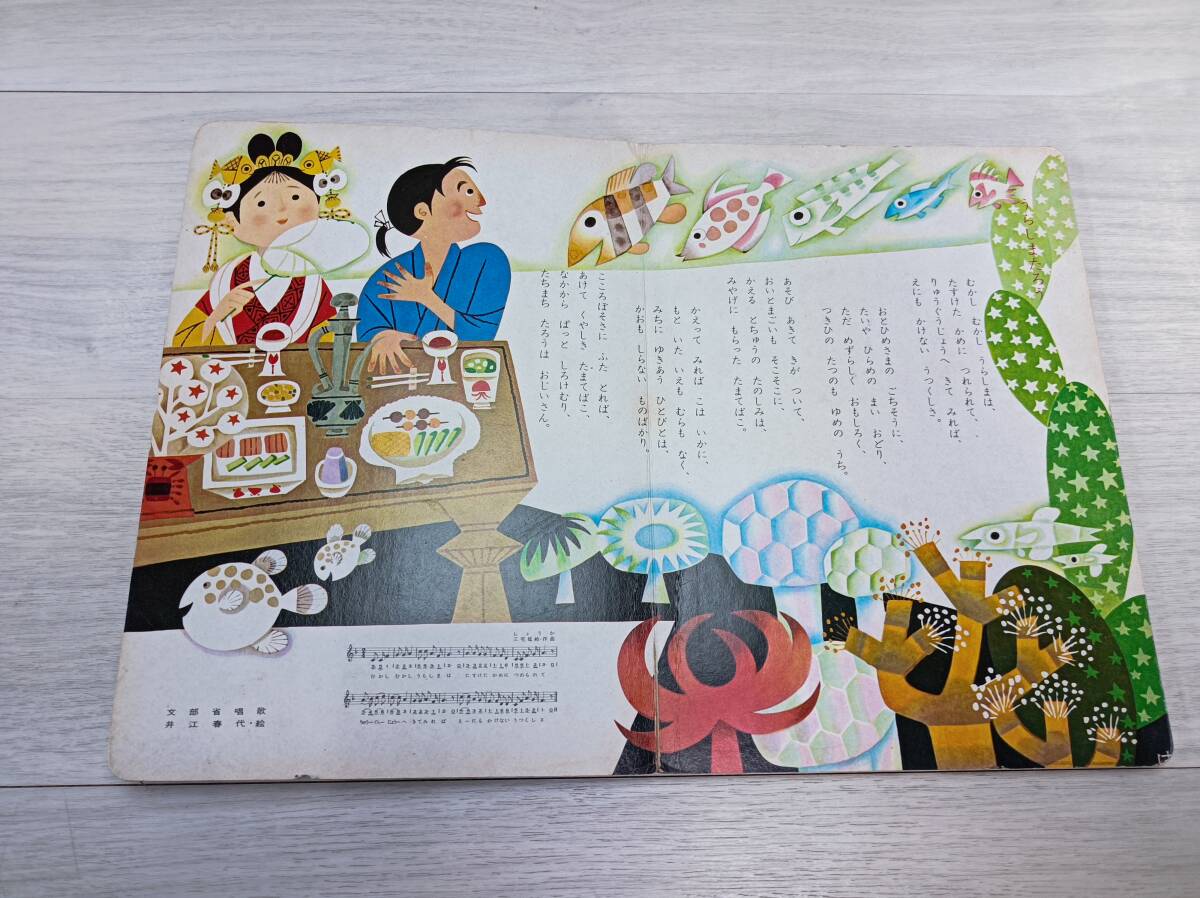 うらしまたろう
むかし むかし うらしまは、
たすけた かめに つれられて、
りゅうぐうじょうへ きて みれば、
えにも かけない うつくしさ。
おとひめさまの ごちそうに、
たいや ひらめの まい おどり、
ただ めずらしく おもしろく、
つきひの たつのも ゆめの うち。
あそび あきて きが ついて、
おいとまごいも そこそこに
かえる とちゅうの たのしみは、
みやげに もらった たまてばこ。
かえって みれば こは いかに、
もと いた いえも むらも なく、
みちに ゆきあう ひとびとは、
かおも しらない ものばかり。
こころぼそさに ふた とれば、
あけて くやしき たまてばこ、
なかから ぱっと しろけむり、
たちまち たろうは おじいさん。
しょうか
むかし むかし うらしまは たすけた かめに つれられて
文部省唱歌
井江春代・絵